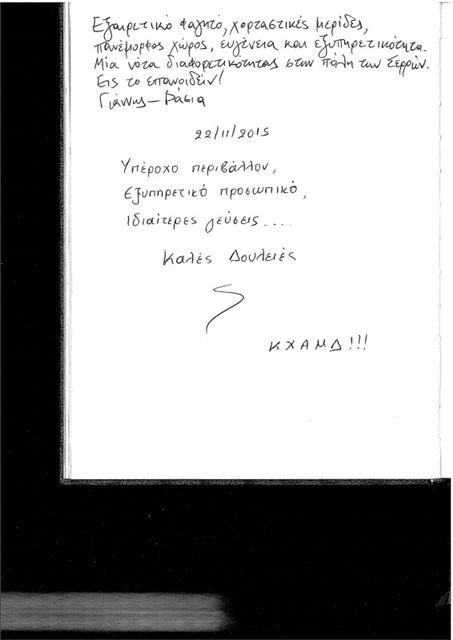 Εξαιρετικό φαγητό, χορταστικές μερίδες,
πανέμορφος χώρος, ευγένεια και εξυπηρετικότητα.
Μία νότα διαφορετικότητας στην πόλη των Σερρών.
Εις το επανιδείν!
Γιάννης – Βάσια
22/11/2015
Υπέροχο περιβάλλον,
Εξυπηρετικό προσωπικό,
Ιδιαίτερες γεύσεις....
Καλές Δουλειές
Κ Χ Α Μ Δ !!!